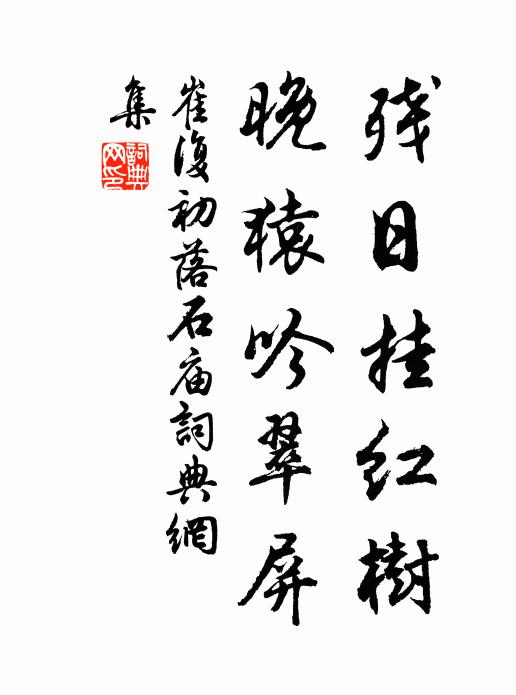 残日挂红樹
晚猿吟翠屏
崔復初落石庙詞典網
集
詞典网印